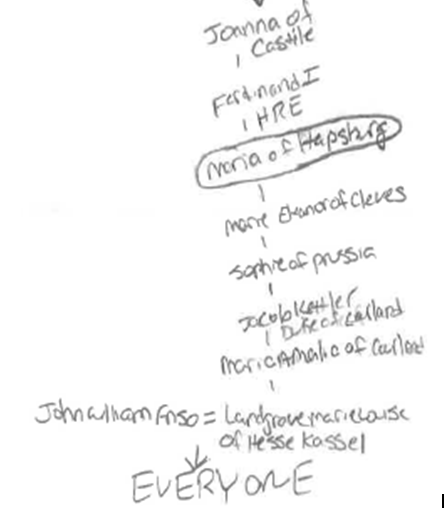 Joanna of
Castile
Ferdinand I
HRE
Maria of Hapsburg
Marie Eleanor of Cleves
Sophie of prussia
Jacob Kettler
Duke of Courland
Maria Amalie of Courland
John William Friso = Landgrave marie Louise
of Hesse Kassel
EVERYONE